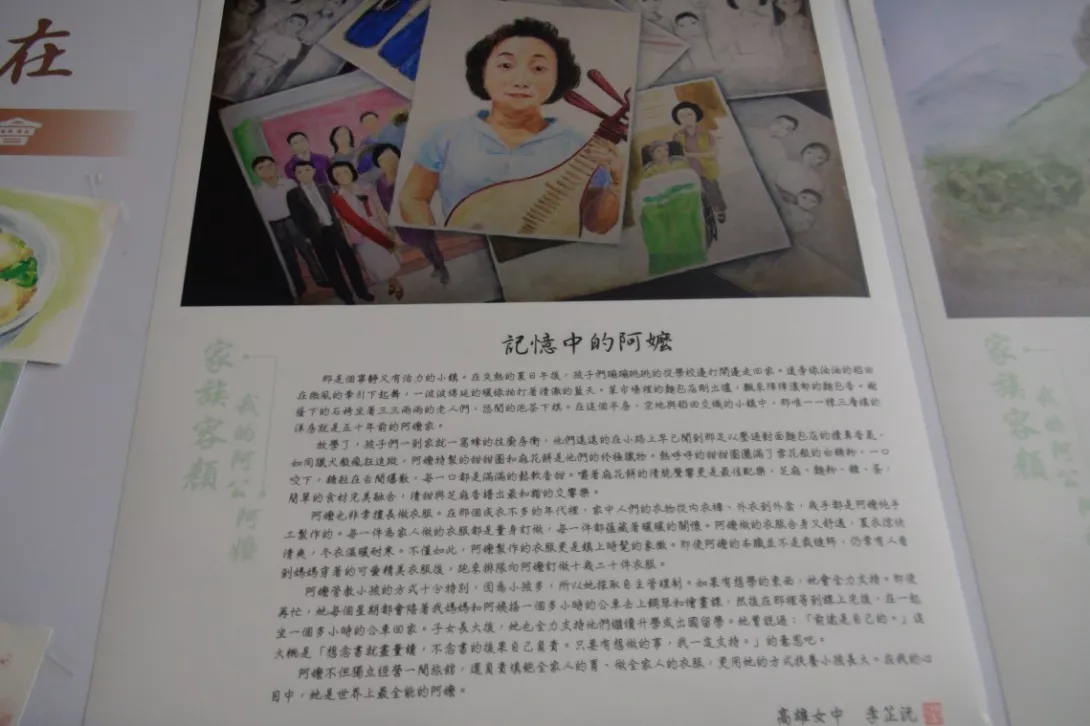 在
記憶中的阿嬤
家族容顏
我的阿公阿嬤
那是個寧靜又有活力的小鎮。在炎熱的夏日午後，孩子們蹦蹦跳跳的從學校邊打鬧邊走回家。這旁綠油油的稻田
在微風的牽引下起舞，一波波綿延的暖綠拍打著清澈的藍天。菜市場裡的麵包店剛出爐，飄來陣陣濃郁的麵包香。樹
蔭下的石椅坐著三三兩兩的老人們，悠閒的泡茶下棋。在這個平房、空地與稻田交織的小鎮中，那唯一一棟三層樓的
洋房就是五十年前的阿嬤家。
放學了，孩子們一到家就一窩蜂的往廚房衝，他們遠遠的在小路上早已聞到那足以壓過對面麵包店的撲鼻香氣，
如同獵犬般瘋狂追蹤，阿嬤特製的甜甜圈和麻花餅是他們的終極獵物。熱呼呼的甜甜圈灑滿了雪花般的白糖粉，一口
咬下，糖粒在舌間爆散，每一口都是滿滿的鬆軟香甜。嚼著麻花餅的清脆聲響更是最佳配樂，芝麻、麵粉、糖、蛋，
簡單的食材完美融合，清甜與芝麻香譜出最和諧的交響樂。
阿嬤也非常擅長做衣服。在那個成衣不多的年代裡，家中人們的衣物從內衣褲、外衣到外套，幾乎都是阿嬤純手
工製作的。每一件為家人做的衣服都是量身訂做，每一件都蘊藏著暖暖的關懷。阿嬤做的衣服合身又舒適，夏衣涼快
清爽，冬衣溫暖耐寒。不僅如此，阿嬤製作的衣服更是鎮上時髦的象徵。即使阿嬤的本職並不是裁縫師，仍常有人看
到媽媽穿著的可愛精美衣服後，跑來排隊向阿嬤訂做十幾二十件衣服。
阿嬤管教小孩的方式十分特別，因為小孩多，所以她採取自主管理制。如果有想學的東西，她會全力支持。即使
再忙，她每個星期都會陪著我媽媽和阿姨搭一個多小時的公車去上鋼琴和繪畫課，然後在那裡等到課上完後，在一起
坐一個多小時的公車回家。子女長大後，她也全力支持他們繼續升學或出國留學。她曾說過：「前途是自己的。」這
大概是「想念書就盡量讀，不念書的後果自己負責。只要有想做的事，我一定支持。」的意思吧。
阿嬤不但獨立經營一間旅館，還負責填飽全家人的胃、做全家人的衣服，更用她的方式扶養小孩長大。在我的心
目中，她是世界上最全能的阿嬤。
高雄女中 李芷沅
家族容顏
我的阿公